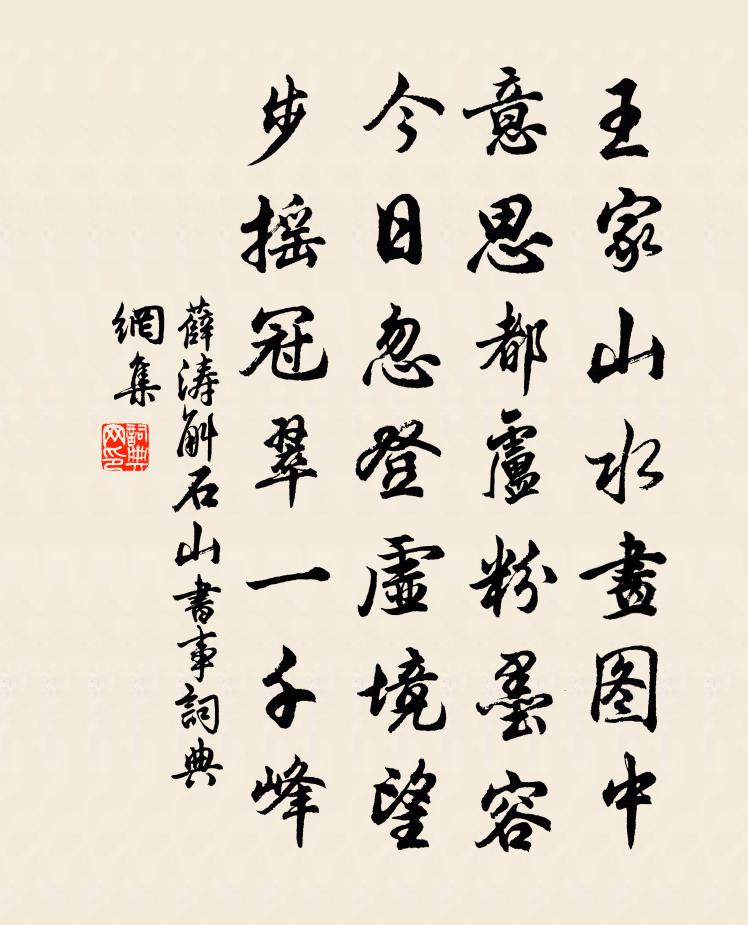 王家山水畫图中
意思都盧粉墨容
今日忽登虛境望
步摇冠翠一千峰
薛濤斛石山書事詞典
網集
詞典
网印